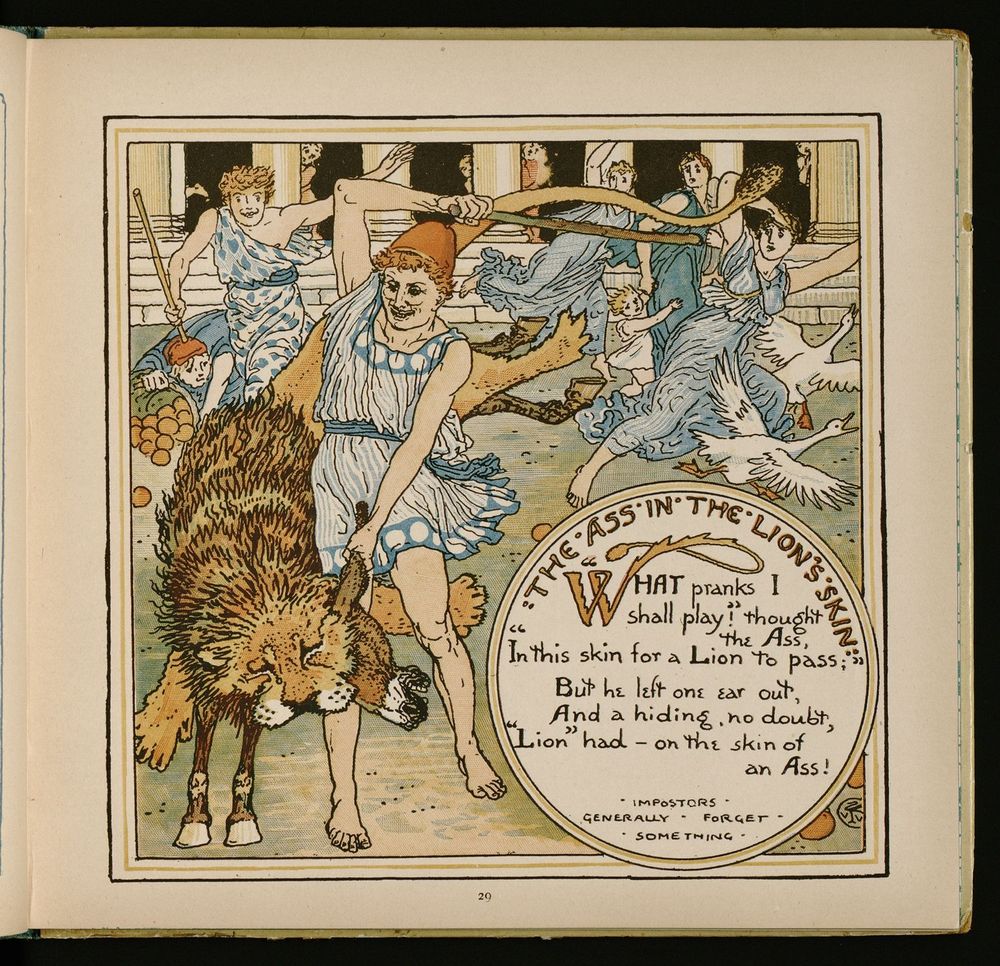 "THE·ASS·IN·THE·LION'S·SKIN."
"WHAT pranks I
shall play!" thought
the Ass,
"In this skin for a Lion to pass;"
But he left one ear out,
And a hiding, no doubt,
"Lion" had – on the skin of
an Ass!
· IMPOSTORS ·
GENERALLY · FORGET ·
· SOMETHING ·
29